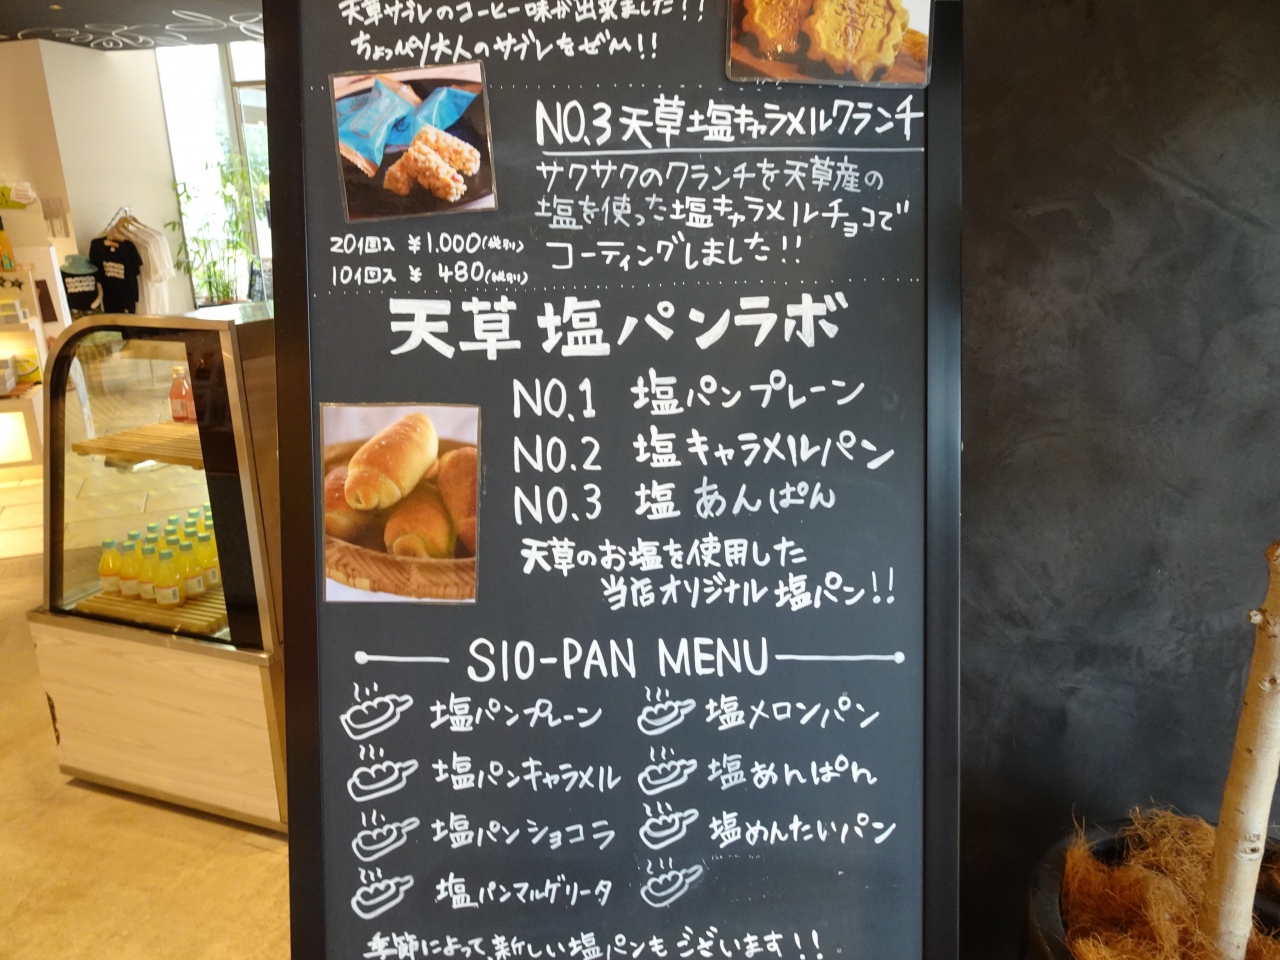 天草サブレのコーヒー味が出来ました!!
ちょっぴり大人のサブレをぜひ!!
NO.3 天草塩キャラメルクランチ
サクサクのクランチを天草産の
塩を使った塩キャラメルチョコで
コーティングしました!!
20個入 ¥1.000(税別)
10個入 ¥ 480(税別)
天草 塩パンラボ
NO.1 塩パンプレーン
NO.2 塩キャラメルパン
NO.3 塩 あんぱん
天草のお塩を使用した
当店オリジナル 塩パン!!
SIO-PAN MENU
塩パンプレーン
塩メロンパン
塩パンキャラメル
塩あんぱん
塩パンショコラ
塩めんたいパン
塩パンマルゲリータ
季節によって、新しい塩パンもございます!!